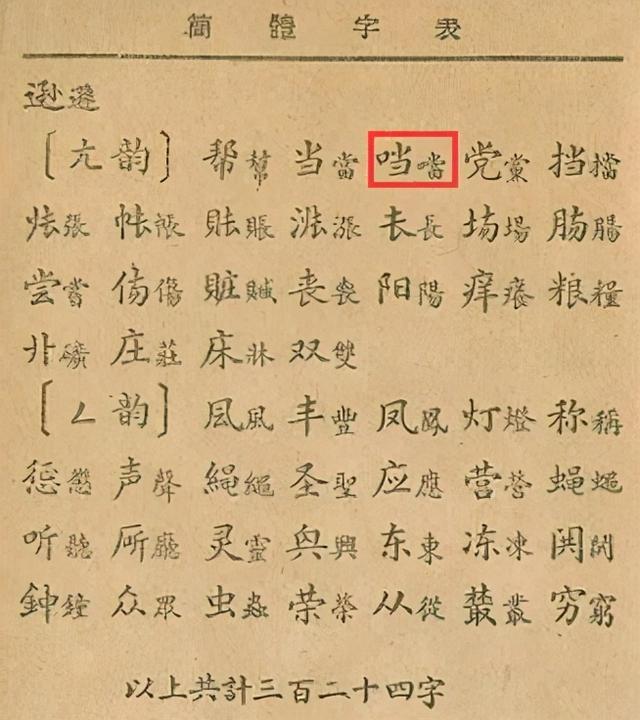 簡體字表
逊遜
[ㄤ韵] 帮幫 当當 𪠽噹 党黨 挡擋
张張 帐帳 账賬 涨漲 长長 场場 肠腸
尝嘗 伤傷 賍贓 丧喪 阳陽 痒癢 粮糧
卝礦 庄莊 床牀 双雙
[ㄥ韵] 凨風 丰豐 凤鳳 灯燈 称稱
惩懲 声聲 绳繩 圣聖 应應 营營 蝇蠅
听聽 厛廳 灵靈 兴興 东東 冻凍
鈡鐘 众眾 虫蟲 荣榮 从從 叢 穷窮
以上共計三百二十四字